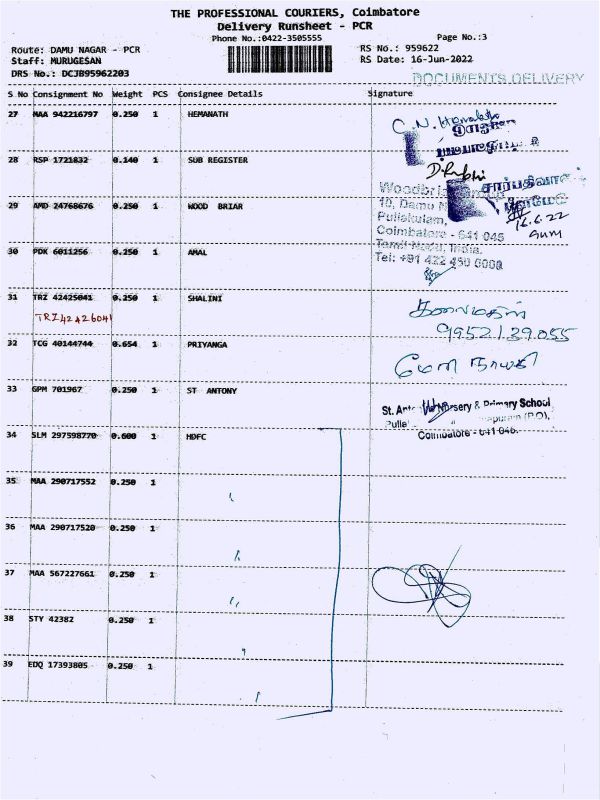 THE PROFESSIONAL COURIERS, Coimbatore
Delivery Runsheet - PCR
Phone No.:0422-3505555
Page No.:3
Route: DAMU NAGAR - PCR
RS No.: 959622
Staff: MURUGESAN
RS Date: 16-Jun-2022
DRS No.: DCJB95962203
DOCUMENTS DELIVERY
S No Consignment No Weight PCS Consignee Details Signature
27 MAA 942216797 0.250 1 HEMANATH
28 RSP 1721832 0.140 1 SUB REGISTER
சார்பதிவாள
29 AMD 24768676 0.250 1 WOOD BRIAR
10, Damu
Puliakulam,
16.6.22
Coimbatore - 641 045
Tamil Nadu, India.
30 PDK 6011256 0.250 1 AMAL
Tel: +91 422 450 0000
31 TRZ 42425041 0.250 1 SHALINI
TRZ42426041
கலைமகள்
9952139055
32 TCG 40144744 0.654 1 PRIYANGA
33 GPM 701967 0.250 1 ST ANTONY
Nursery & Primary School
(P.O),
Coimbatore - 641 045.
34 SLM 297598770 0.600 1 HDFC
35 MAA 290717552 0.250 1
36 MAA 290717520 0.250 1
37 MAA 567227661 0.250 1
38 STY 42382 0.250 1
39 EDQ 17393805 0.250 1